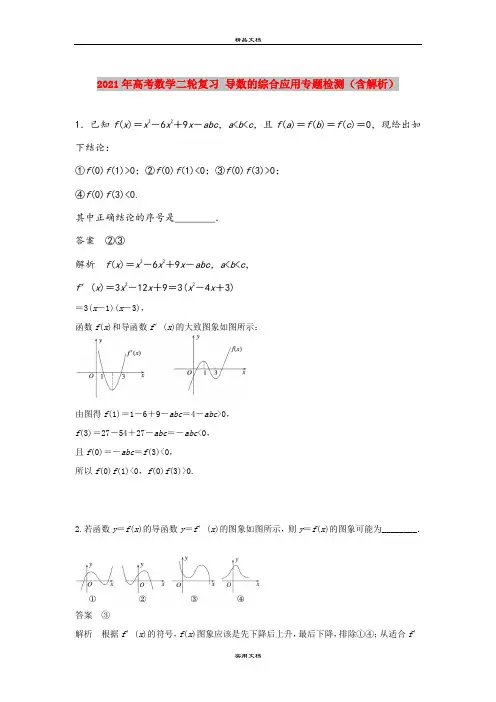 精品文档
2021年高考数学二轮复习 导数的综合应用专题检测（含解析）
1．已知f(x)＝x³－6x²＋9x－abc，a<b<c，且f(a)＝f(b)＝f(c)＝0，现给出如
下结论：
①f(0)f(1)>0；②f(0)f(1)<0；③f(0)f(3)>0；
④f(0)f(3)<0.
其中正确结论的序号是________．
答案 ②③
解析 f(x)＝x³－6x²＋9x－abc，a<b<c，
f′(x)＝3x²－12x＋9＝3(x²－4x＋3)
＝3(x－1)(x－3)，
函数f(x)和导函数f′(x)的大致图象如图所示：
y f′(x) O 1 3 x
y f(x) O 1 3 x
由图得f(1)＝1－6＋9－abc＝4－abc>0，
f(3)＝27－54＋27－abc＝－abc<0，
且f(0)＝－abc＝f(3)<0，
所以f(0)f(1)<0，f(0)f(3)>0.
2.若函数y＝f(x)的导函数y＝f′(x)的图象如图所示，则y＝f(x)的图象可能为________．
y O x y O x y O x y O x
① ② ③ ④
答案 ③
解析 根据f′(x)的符号，f(x)图象应该是先下降后上升，最后下降，排除①④；从适合f′
实用文档